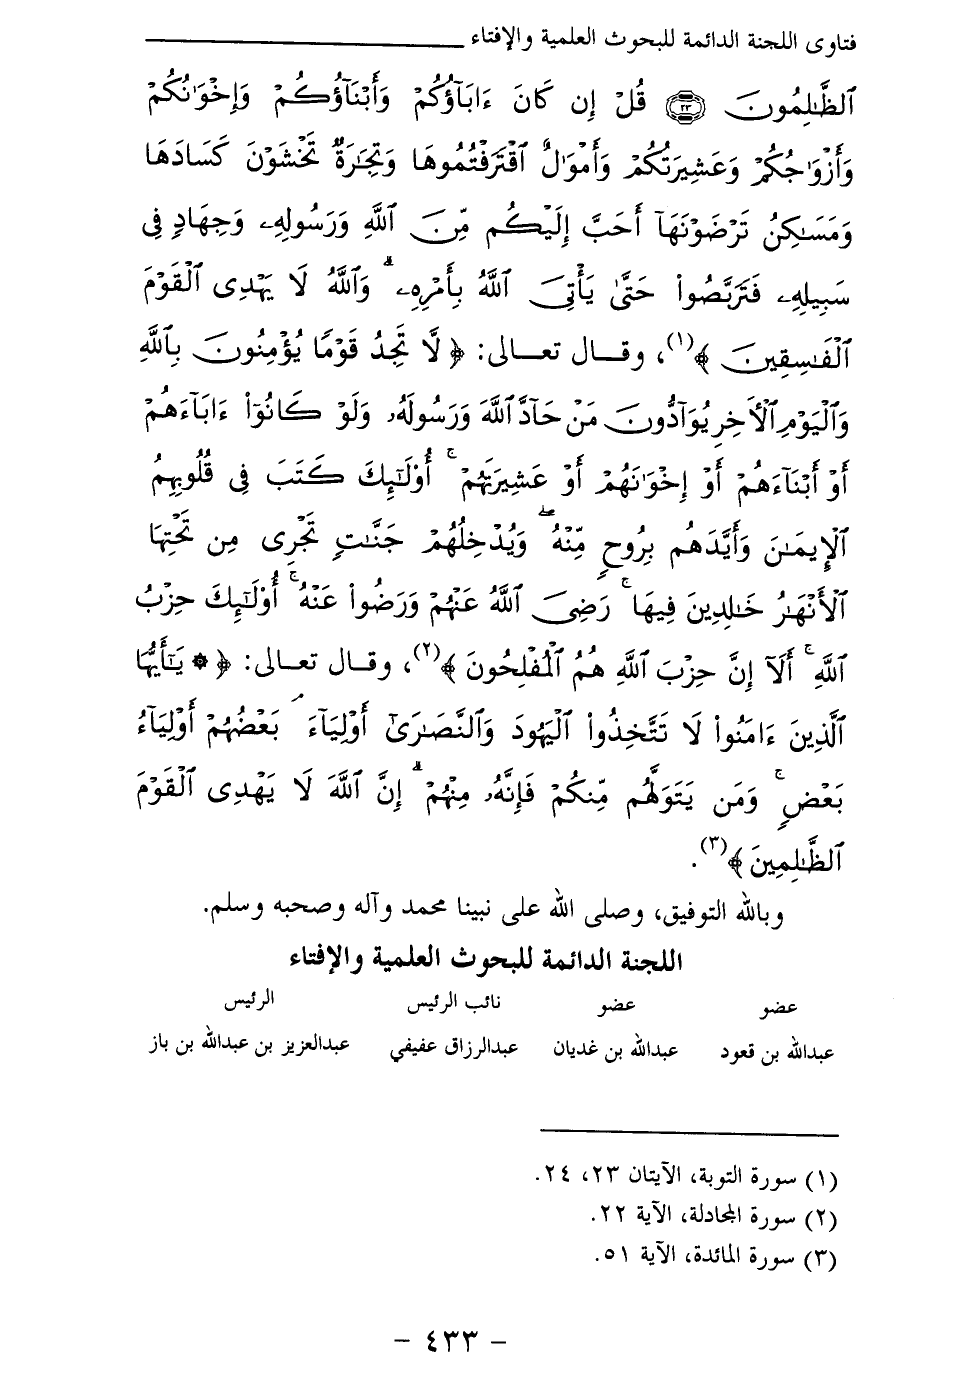 فتاوى اللجنة الدائمة للبحوث العلمية والإفتاء
ٱلظَّٰلِمُونَ ۝٢٣ قُلْ إِن كَانَ ءَابَآؤُكُمْ وَأَبْنَآؤُكُمْ وَإِخْوَٰنُكُمْ
وَأَزْوَٰجُكُمْ وَعَشِيرَتُكُمْ وَأَمْوَٰلٌ ٱقْتَرَفْتُمُوهَا وَتِجَٰرَةٌ تَخْشَوْنَ كَسَادَهَا
وَمَسَٰكِنُ تَرْضَوْنَهَآ أَحَبَّ إِلَيْكُم مِّنَ ٱللَّهِ وَرَسُولِهِۦ وَجِهَادٍ فِى
سَبِيلِهِۦ فَتَرَبَّصُوا۟ حَتَّىٰ يَأْتِىَ ٱللَّهُ بِأَمْرِهِۦ ۗ وَٱللَّهُ لَا يَهْدِى ٱلْقَوْمَ
ٱلْفَٰسِقِينَ ﴾(١)، وقال تعالى: ﴿ لَّا تَجِدُ قَوْمًا يُؤْمِنُونَ بِٱللَّهِ
وَٱلْيَوْمِ ٱلْأَخِرِ يُوَآدُّونَ مَنْ حَآدَّ ٱللَّهَ وَرَسُولَهُۥ وَلَوْ كَانُوٓا۟ ءَابَآءَهُمْ
أَوْ أَبْنَآءَهُمْ أَوْ إِخْوَٰنَهُمْ أَوْ عَشِيرَتَهُمْ ۚ أُو۟لَٰٓئِكَ كَتَبَ فِى قُلُوبِهِمُ
ٱلْإِيمَٰنَ وَأَيَّدَهُم بِرُوحٍ مِّنْهُ ۖ وَيُدْخِلُهُمْ جَنَّٰتٍ تَجْرِى مِن تَحْتِهَا
ٱلْأَنْهَٰرُ خَٰلِدِينَ فِيهَا ۚ رَضِىَ ٱللَّهُ عَنْهُمْ وَرَضُوا۟ عَنْهُ ۚ أُو۟لَٰٓئِكَ حِزْبُ
ٱللَّهِ ۚ أَلَآ إِنَّ حِزْبَ ٱللَّهِ هُمُ ٱلْمُفْلِحُونَ ﴾(٢)، وقال تعالى: ﴿ ۞ يَٰٓأَيُّهَا
ٱلَّذِينَ ءَامَنُوا۟ لَا تَتَّخِذُوا۟ ٱلْيَهُودَ وَٱلنَّصَٰرَىٰٓ أَوْلِيَآءَ ۘ بَعْضُهُمْ أَوْلِيَآءُ
بَعْضٍ ۚ وَمَن يَتَوَلَّهُم مِّنكُمْ فَإِنَّهُۥ مِنْهُمْ ۗ إِنَّ ٱللَّهَ لَا يَهْدِى ٱلْقَوْمَ
ٱلظَّٰلِمِينَ ﴾(٣).
وبالله التوفيق، وصلى الله على نبينا محمد وآله وصحبه وسلم.
اللجنة الدائمة للبحوث العلمية والإفتاء
عضو عضو نائب الرئيس الرئيس
عبدالله بن قعود عبدالله بن غديان عبدالرزاق عفيفي عبدالعزيز بن عبدالله بن باز
(١) سورة التوبة، الآيتان ٢٣، ٢٤.
(٢) سورة المجادلة، الآية ٢٢.
(٣) سورة المائدة، الآية ٥١.
- ٤٣٣ -